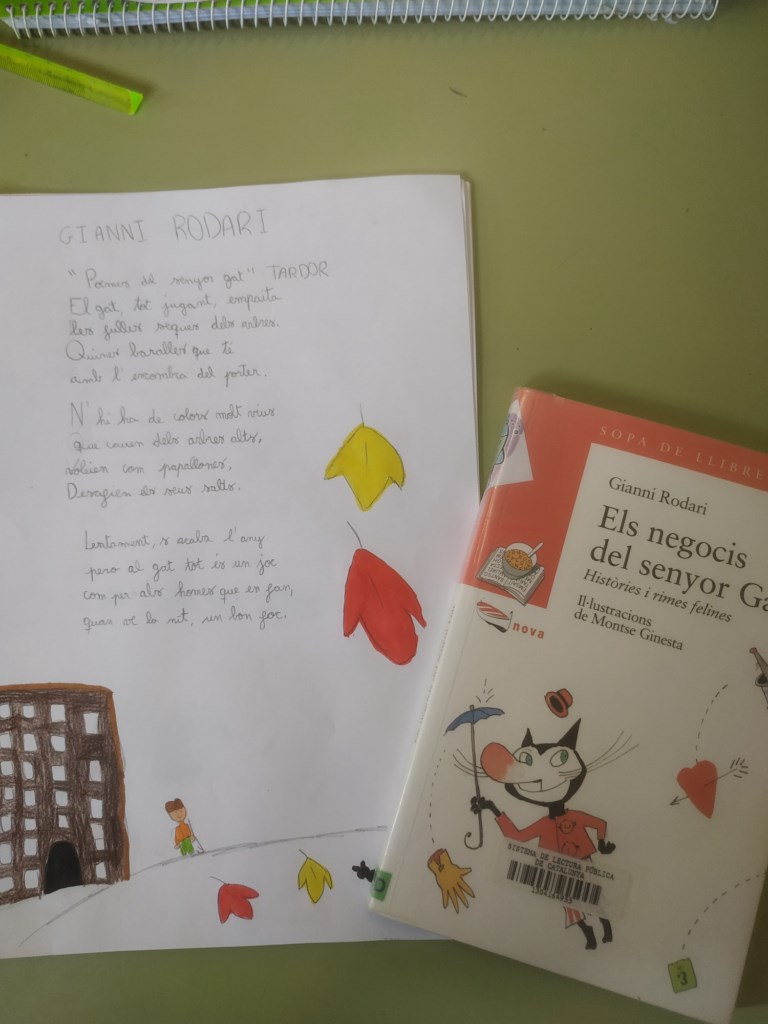 GIANNI RODARI
"Poemes del senyor gat" TARDOR
El gat, tot jugant, empaita
les fulles seques dels arbres.
Quines baralles que té
amb l'escombra del porter.
N'hi ha de colors molt vius
que cauen dels arbres alts,
volien com papallones,
Desafien els seus salts.
Lentament, s'acaba l'any
pero al gat tot és un joc
com per als homes que en fan,
quan ve la nit, un bon foc.
SOPA DE LLIBRE
Gianni Rodari
Els negocis
del senyor Ga
Històries i rimes felines
Il·lustracions
de Montse Ginesta
nova
SISTEMA DE LECTURA PÚBLICA
DE CATALUNYA
3